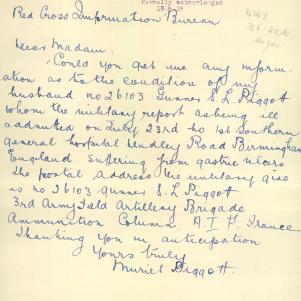 Formally acknowledged
Red Cross Information Bureau
Dear Madam.
Could you get me any inform
ation as to the condition of my
husband no 26103 Gunner S. L. Piggott
whom the military report as being ill
addmited on July 23rd to 1st Southern
general hospital Dudley Road Birmingham
England Suffering from gastric ulcers
The postal address the military give
is no 26103 Gunner S. L Piggott
3rd Army Field Artillery Brigade
Ammunition Column, A. I F. France
Thanking you in anticipation
Yours truly
Muriel Piggott.